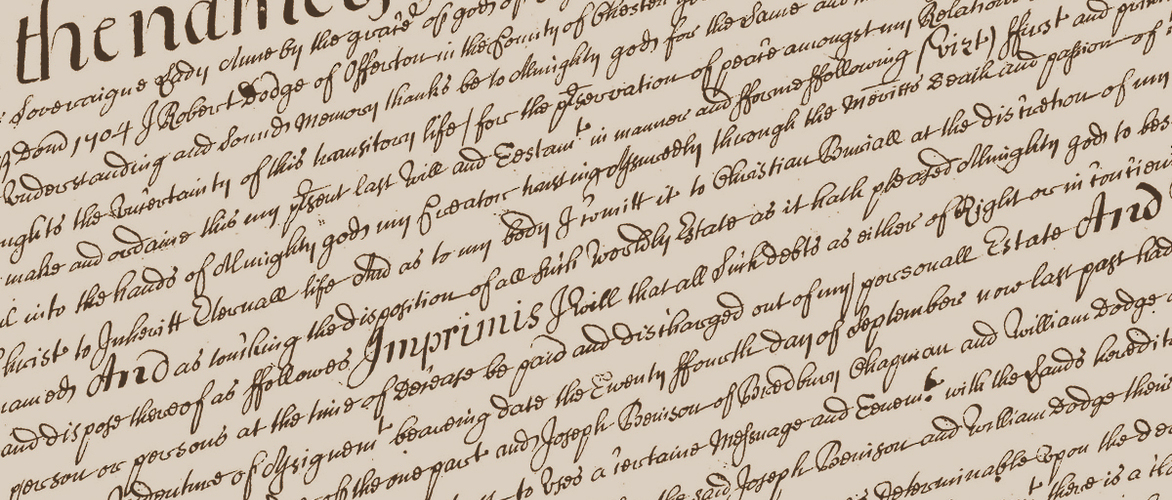 the name of
Soveraigne Lady Anne by the grace of god of
Dom 1704 I Robert Dodge of Offerton in the County of Chester
Understanding and Sound Memory thanks be to Almighty god for the Same and
the Uncertainty of this transitory life / for the pservation of peace amongst my Relations
make and ordaine this my psent last Will and Testamt in manner and fforme ffollowing (vizt) ffirst and
into the hands of Almighty god my Creator trusting Assuredly through the Meritts death and passion of
to Inheritt Eternall life And as to my body I comitt it to Christian Buriall at the discretion of my
And as touching the disposition of all such Worldly Estate as it hath pleased Almighty god to
and dispose thereof as ffollowes Imprimis I will that all Such debts as either of Right or in
person or persons at the time of Decease be paid and discharged out of my personall Estate And
of Assignemt beareing date the Twenty ffourth day of September now last past had
of the one part and Joseph Benison of Bredbury Chapman and William Dodge
to Uses a certaine Messuage and Tenemt with the Lands
the said Joseph Benison and William Dodge their
Determinable Upon the
there is a